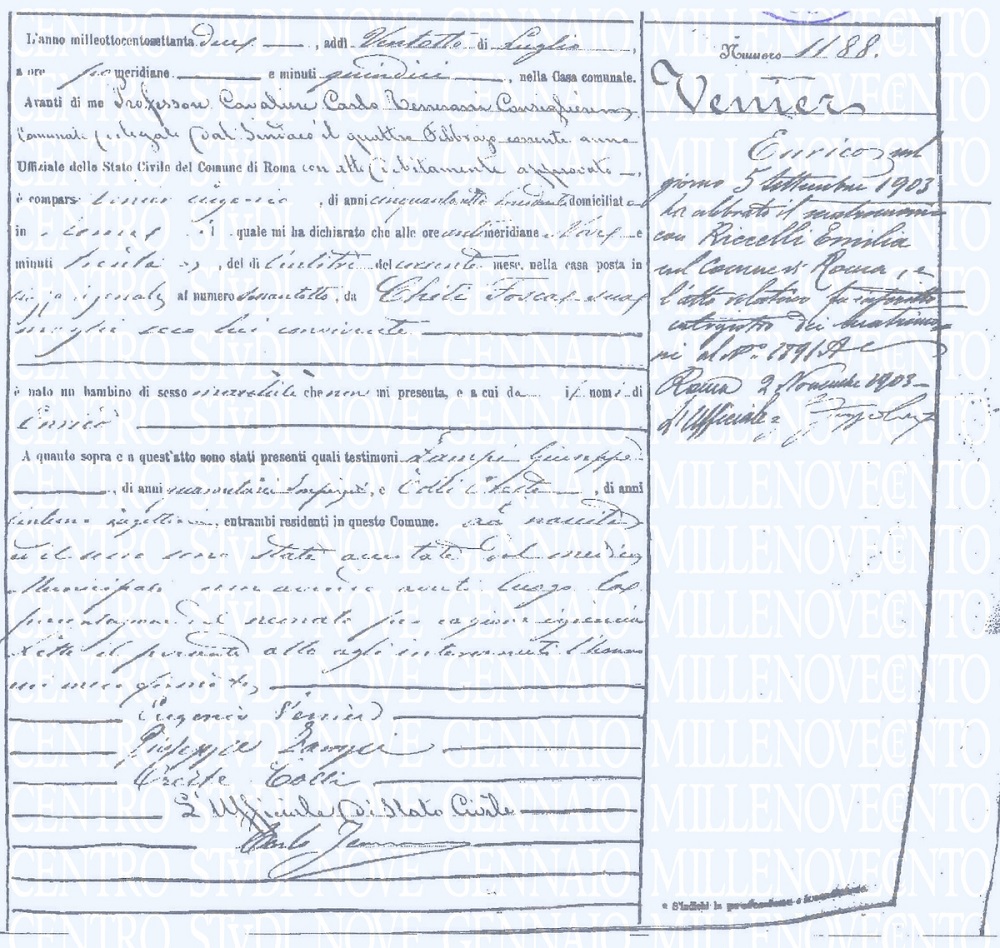 L'anno milleottocentosettanta due, addì Ventotto di Luglio,
a ore pomeridiane e minuti quindici, nella Casa comunale.
Avanti di me Professore Cavaliere Carlo Consigliere
Comunale delegato dal Sindaco il quattro Febbrajo corrente anno
Uffiziale dello Stato Civile del Comune di Roma con atto debitamente approvato
è comparso Venier Eugenio, di anni cinquantotto domiciliato
in Roma il quale mi ha dichiarato che alle ore antimeridiane Nove e
minuti trenta, del dì Ventitre del corrente mese, nella casa posta in
al numero sessantotto, da Chiti Fosca sua
moglie seco lui convivente
è nato un bambino di sesso maschile che non mi presenta, e a cui da il nome di
Enrico
A quanto sopra e a quest'atto sono stati presenti quali testimoni Zampi Giuseppe
, di anni , e Colli Oreste, di anni
, entrambi residenti in questo Comune. La nascita
ed il sesso sono state accertate dal medico
Municipale non avendo avuto luogo la
presentazione del neonato per ragioni igieniche
Letto il presente atto agli intervenuti l'hanno
Eugenio Venier
Giuseppe Zampi
Oreste Colli
L'Uffiziale di Stato Civile
Carlo
Numero 1188.
Venier
Enrico nel
giorno 5 Settembre 1903
ha celebrato il matrimonio
con Riccelli Emilia
nel Comune di Roma, e
l'atto relativo fu inscritto
nel registro dei matrimo
ni al N° 1891 A
Roma 2 Novembre 1903
L'Ufficiale
* S'indichi la
CENTRO STVDI NOVE GENNAIO MILLENOVECENTO